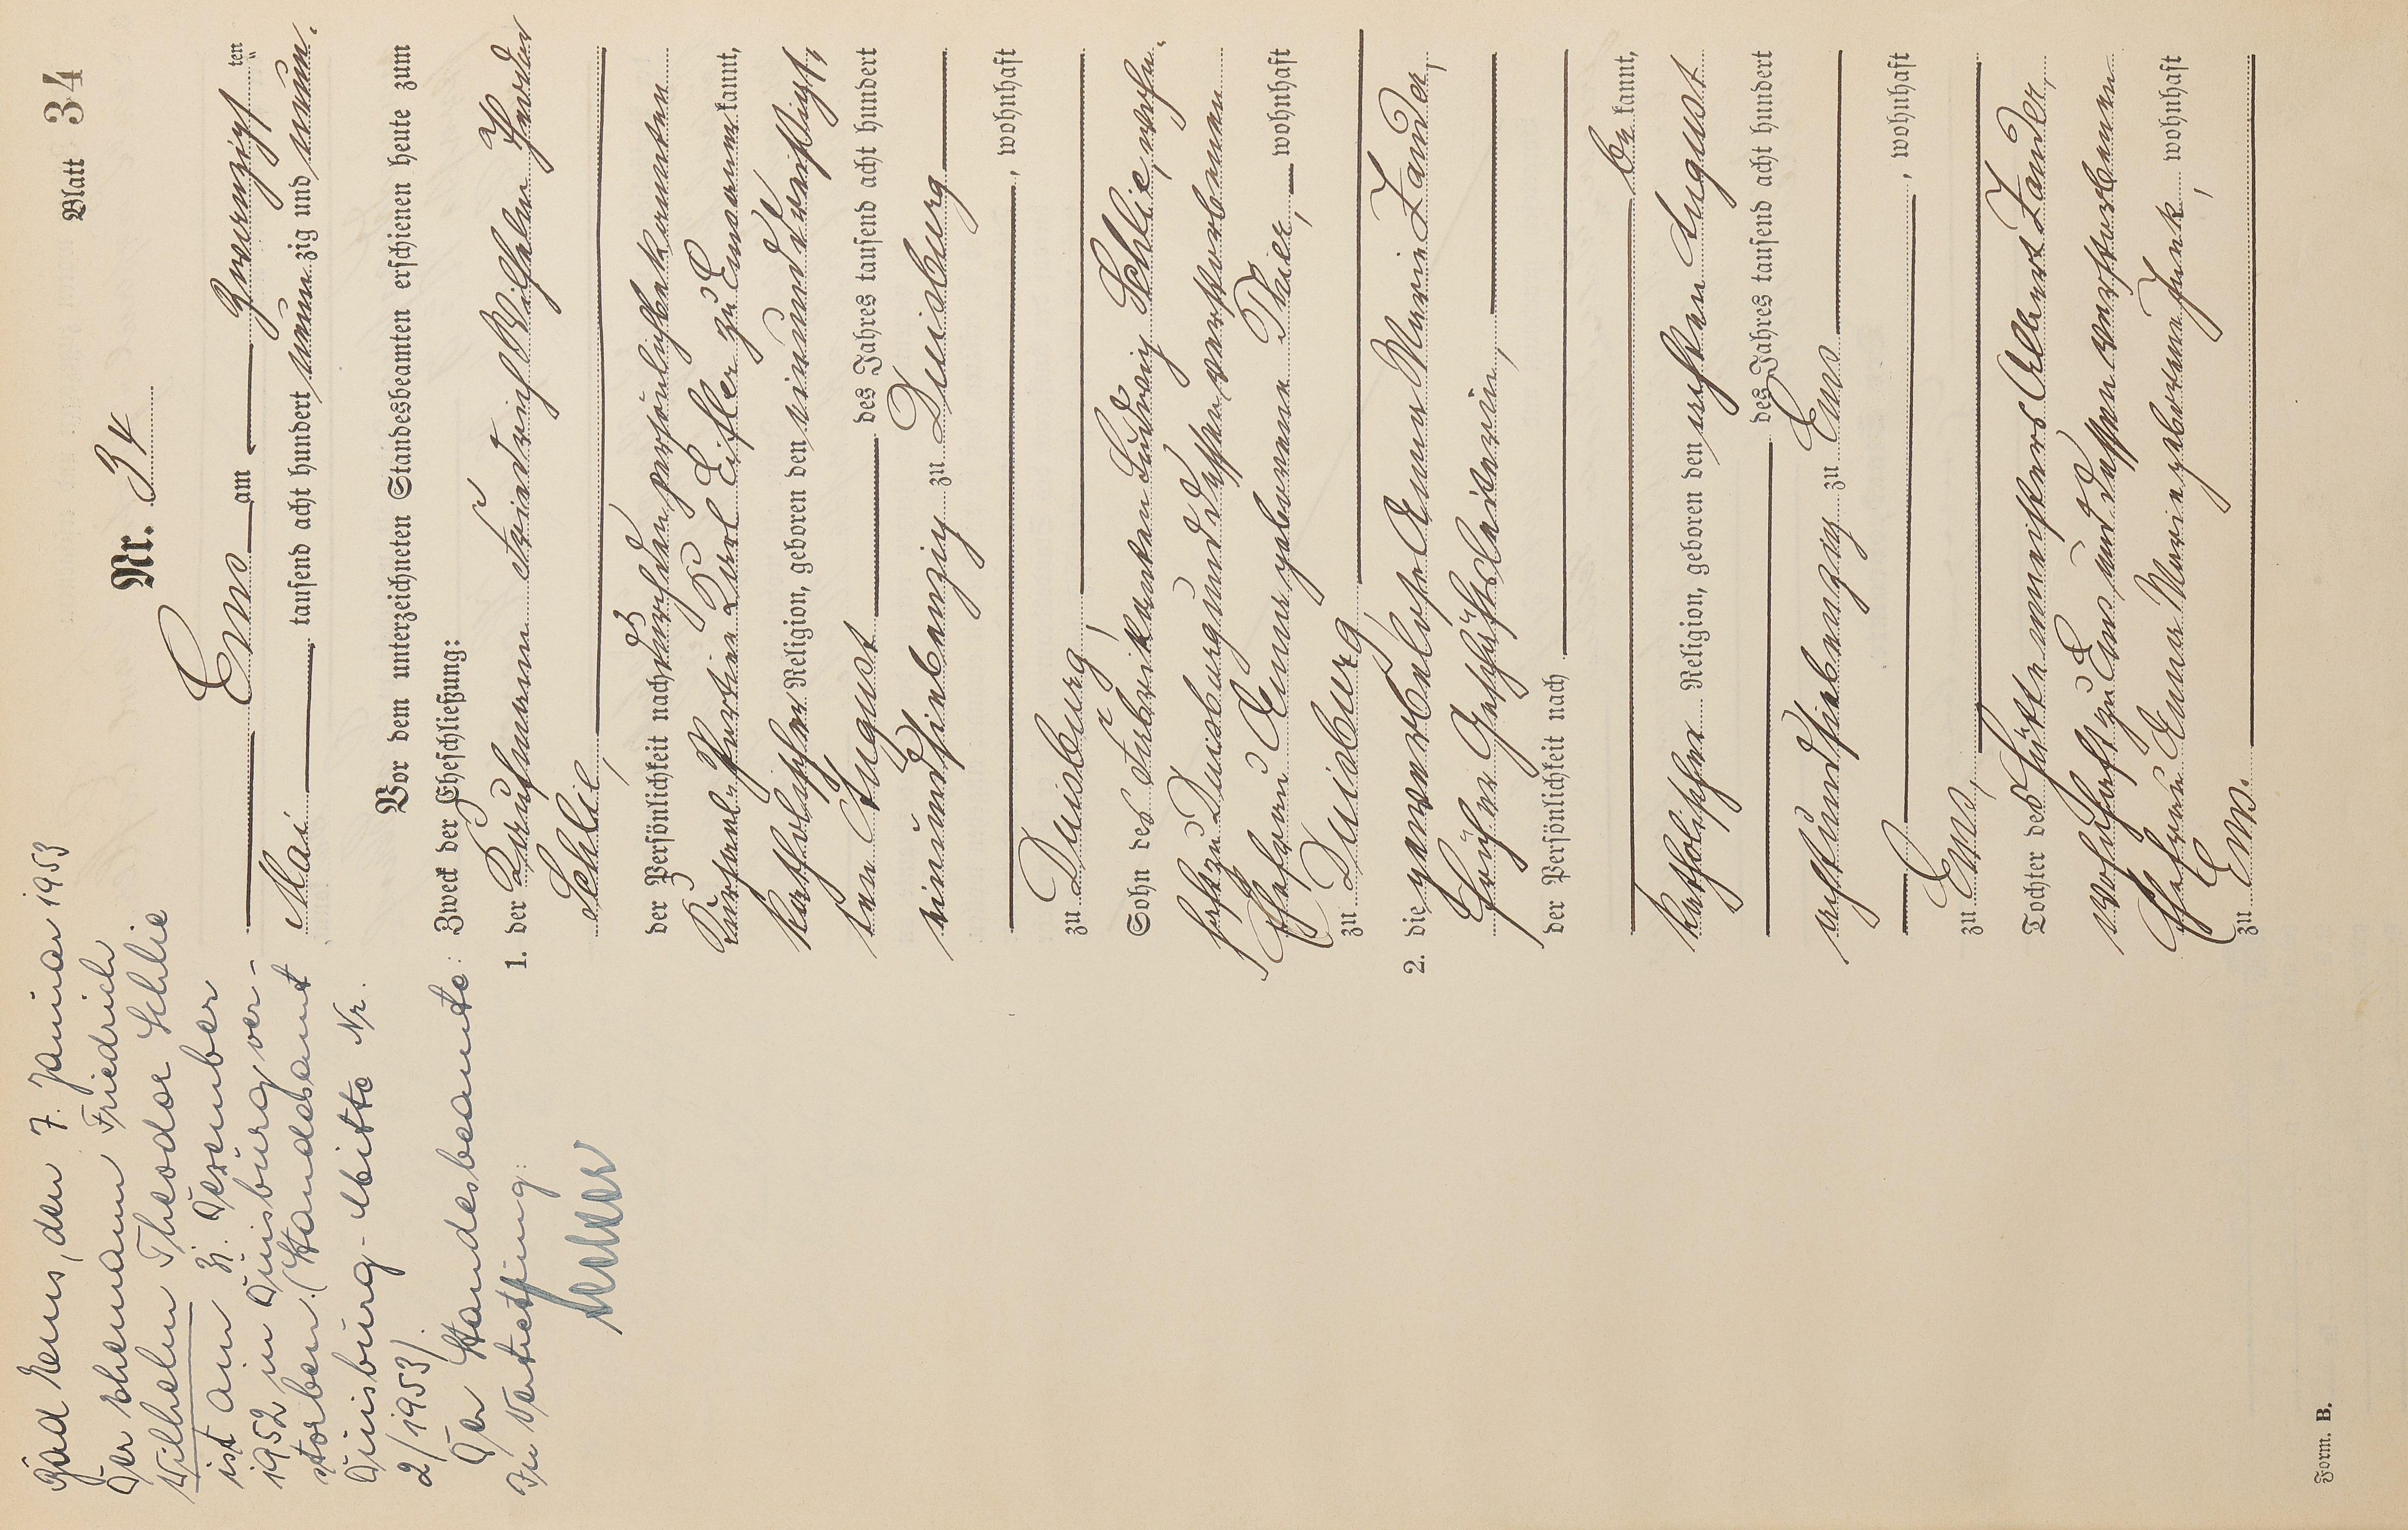 Blatt 34
Nr. 34
Ems am Zwanzigsten
Mai tausend acht hundert neunzig und neun.
Vor dem unterzeichneten Standesbeamten erschienen heute zum
Zweck der Eheschließung:
1. der Kaufmann Friedrich Wilhelm Theodor
Schlie,
der Persönlichkeit nach durch den persönlich bekannten
Kurhaus-Portier Karl Eisler zu Ems anerkannt,
katholischer Religion, geboren den einunddreißigs-
ten August des Jahres tausend acht hundert
einundsiebenzig zu Duisburg
, wohnhaft
zu Duisburg,
Sohn des Fabrikanten Ludwig Schlie, wohn-
haft zu Duisburg und dessen verstorbenen
Ehefrau Anna geborene Thier, wohnhaft
zu Duisburg,
2. die gewerbelose Anna Maria Zander,
früher Geschäftsleiterin,
der Persönlichkeit nach
bekannt,
katholischer Religion, geboren den ersten August
des Jahres tausend acht hundert
achtundsiebenzig zu Ems
, wohnhaft
zu Ems,
Tochter des Hüttenmeisters Albert Zander,
wohnhaft zu Ems, und dessen verstorbenen
Ehefrau Anna Maria geborene Funk, wohnhaft
zu Ems.
Bad Ems, den 7. Januar 1953
Der Ehemann Friedrich
Wilhelm Theodor Schlie
ist am 31. Dezember
1952 in Duisburg ver-
storben. (Standesamt
Duisburg-Mitte Nr.
2/1953).
Der Standesbeamte:
In Vertretung:
Form. B.